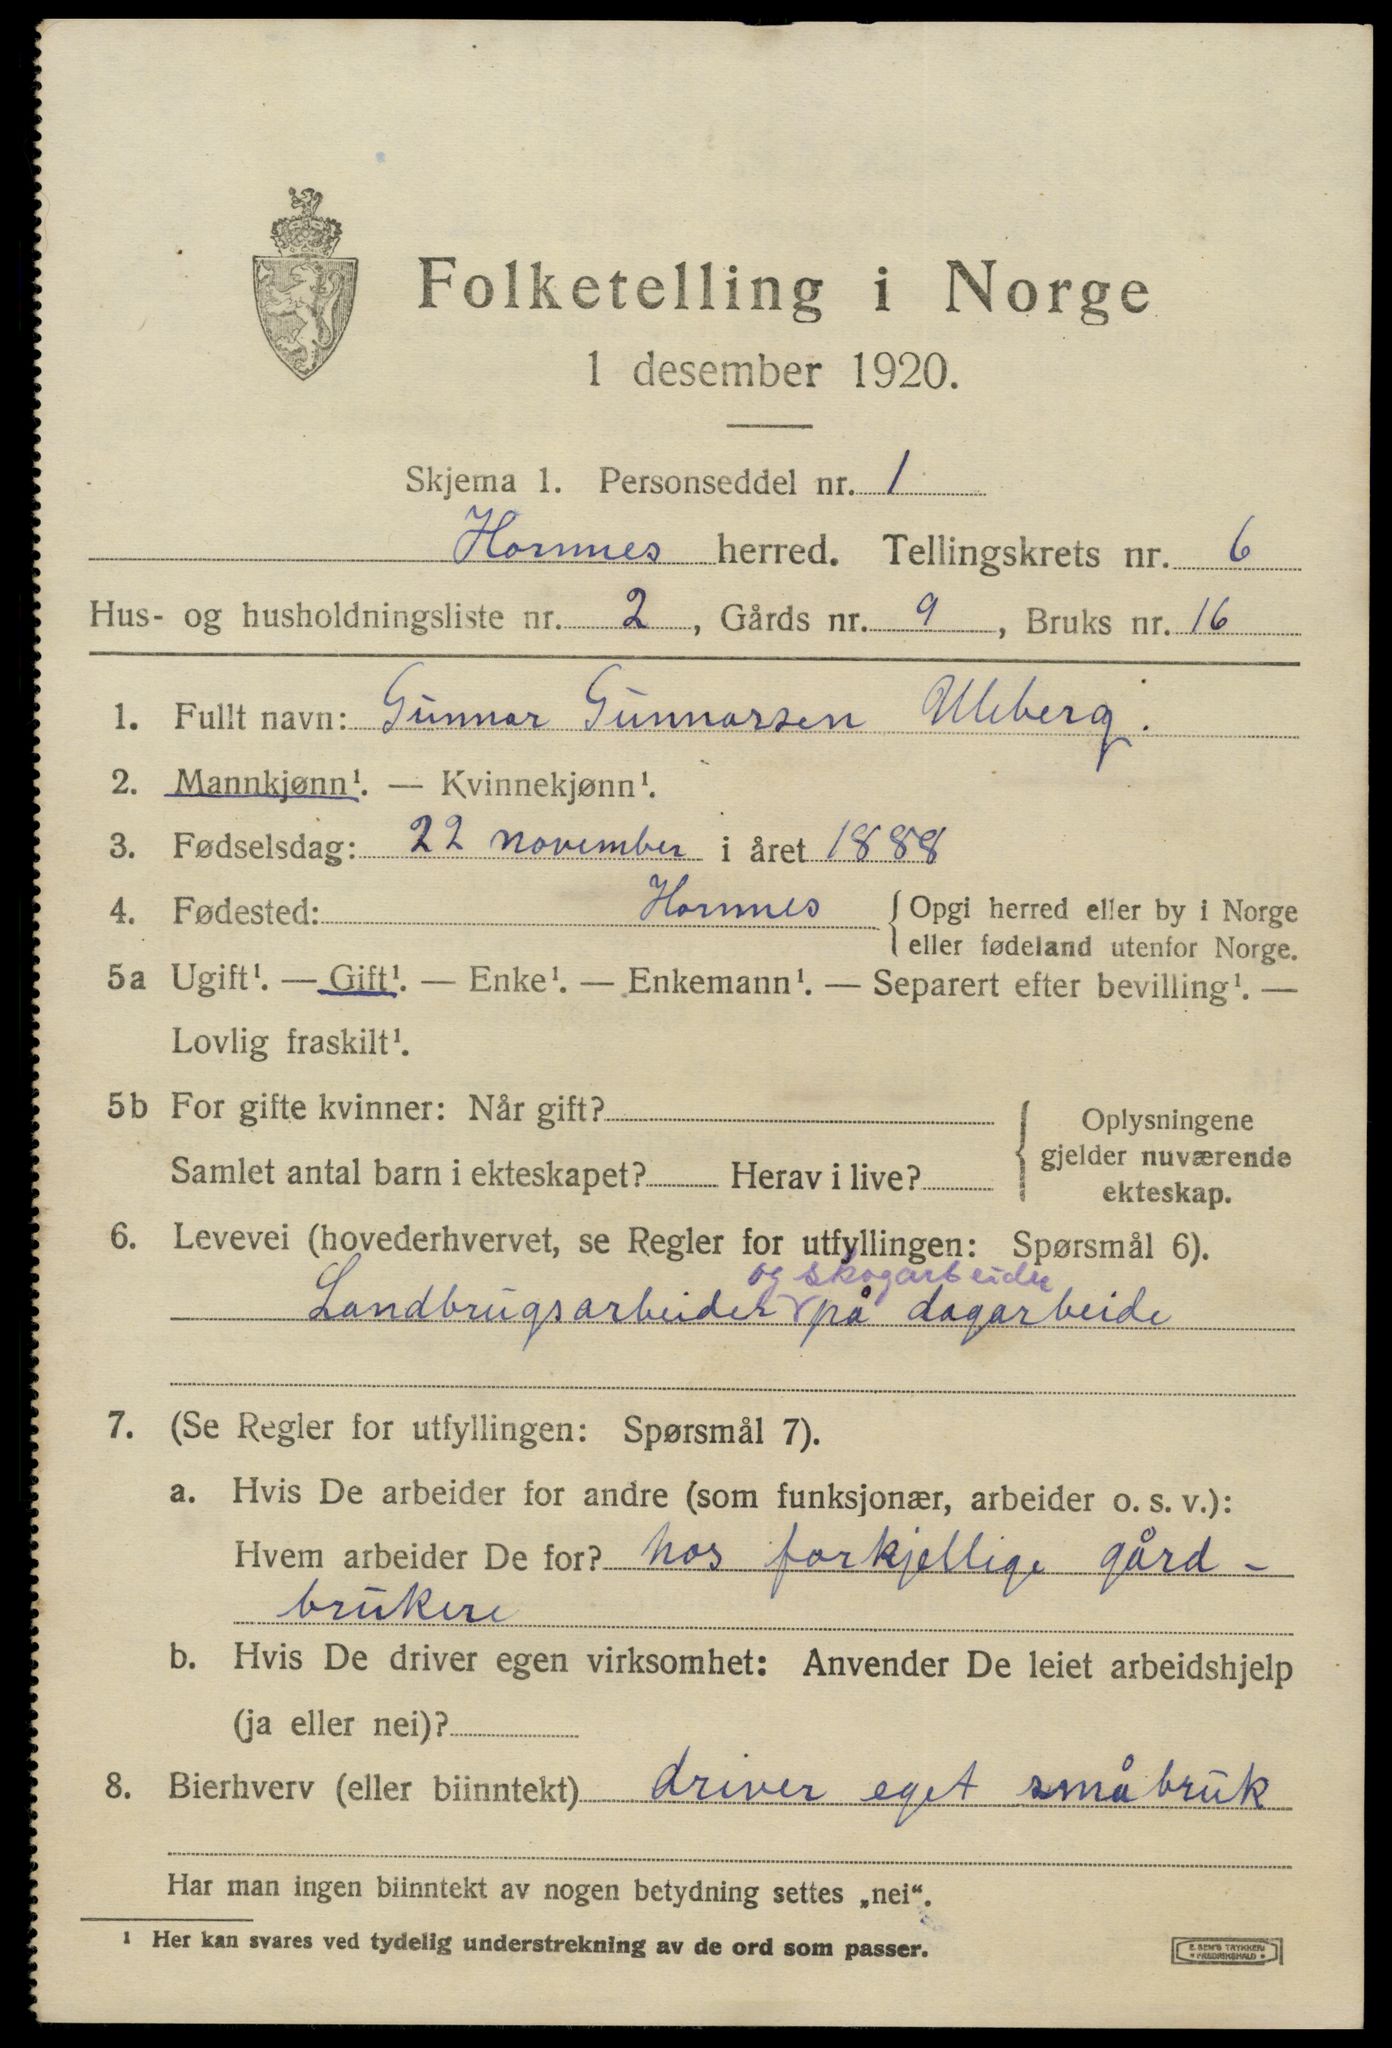 Folketelling i Norge
1 desember 1920.
Skjema 1. Personseddel nr. 1
Hornnes herred. Tellingskrets nr. 6
Hus- og husholdningsliste nr. 2, Gårds nr. 9, Bruks nr. 16
1. Fullt navn: Gunnar Gunnarsen Uleberg.
2. Mannkjønn¹. — Kvinnekjønn¹.
3. Fødselsdag: 22 november i året 1888
4. Fødested: Hornnes { Opgi herred eller by i Norge
eller fødeland utenfor Norge.
5a Ugift¹. — Gift¹. — Enke¹. — Enkemann¹. — Separert efter bevilling¹. —
Lovlig fraskilt¹.
5b For gifte kvinner: Når gift?
Samlet antal barn i ekteskapet? Herav i live?
{ Oplysningene
gjelder nuværende
ekteskap.
6. Levevei (hovederhvervet, se Regler for utfyllingen: Spørsmål 6).
og skogarbeider
Landbrugsarbeider på dagarbeide
7. (Se Regler for utfyllingen: Spørsmål 7).
a. Hvis De arbeider for andre (som funksjonær, arbeider o. s. v.):
Hvem arbeider De for? hos forkjellige gård-
brukere
b. Hvis De driver egen virksomhet: Anvender De leiet arbeidshjelp
(ja eller nei)?
8. Bierhverv (eller biinntekt) driver eget småbruk
Har man ingen biinntekt av nogen betydning settes „nei“.
¹ Her kan svares ved tydelig understrekning av de ord som passer.
E. SEM'S TRYKKERI
* FREDRIKSHALD *